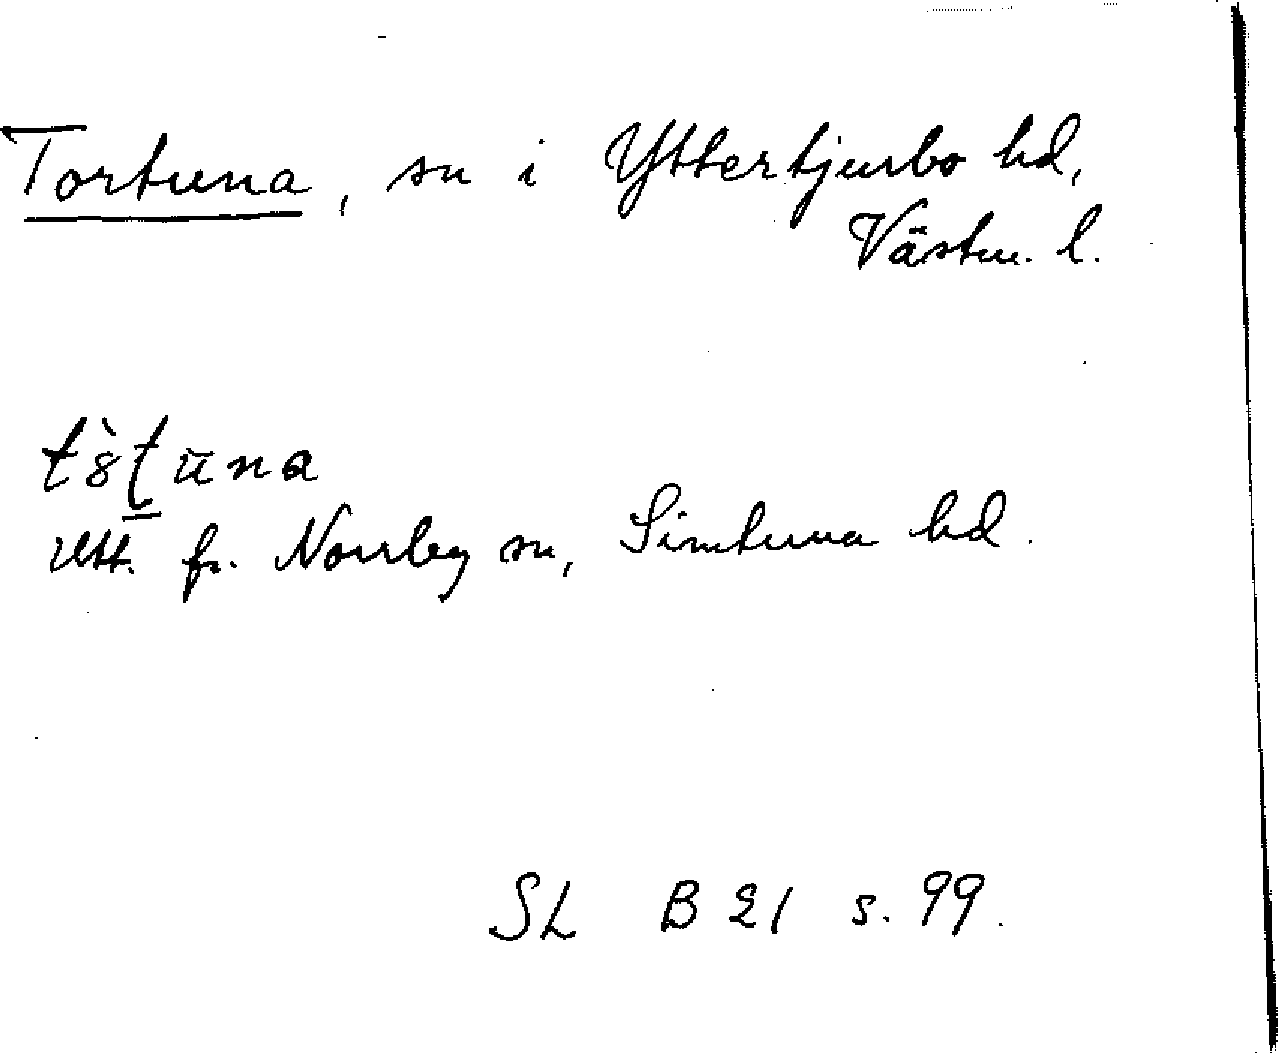 Tortuna, sn i Yttertjurbo hd,
Västm. l.
t8̀ʈūna
Utt. fr. Norrby sn, Simtuna hd.
SL B 21 s. 99.